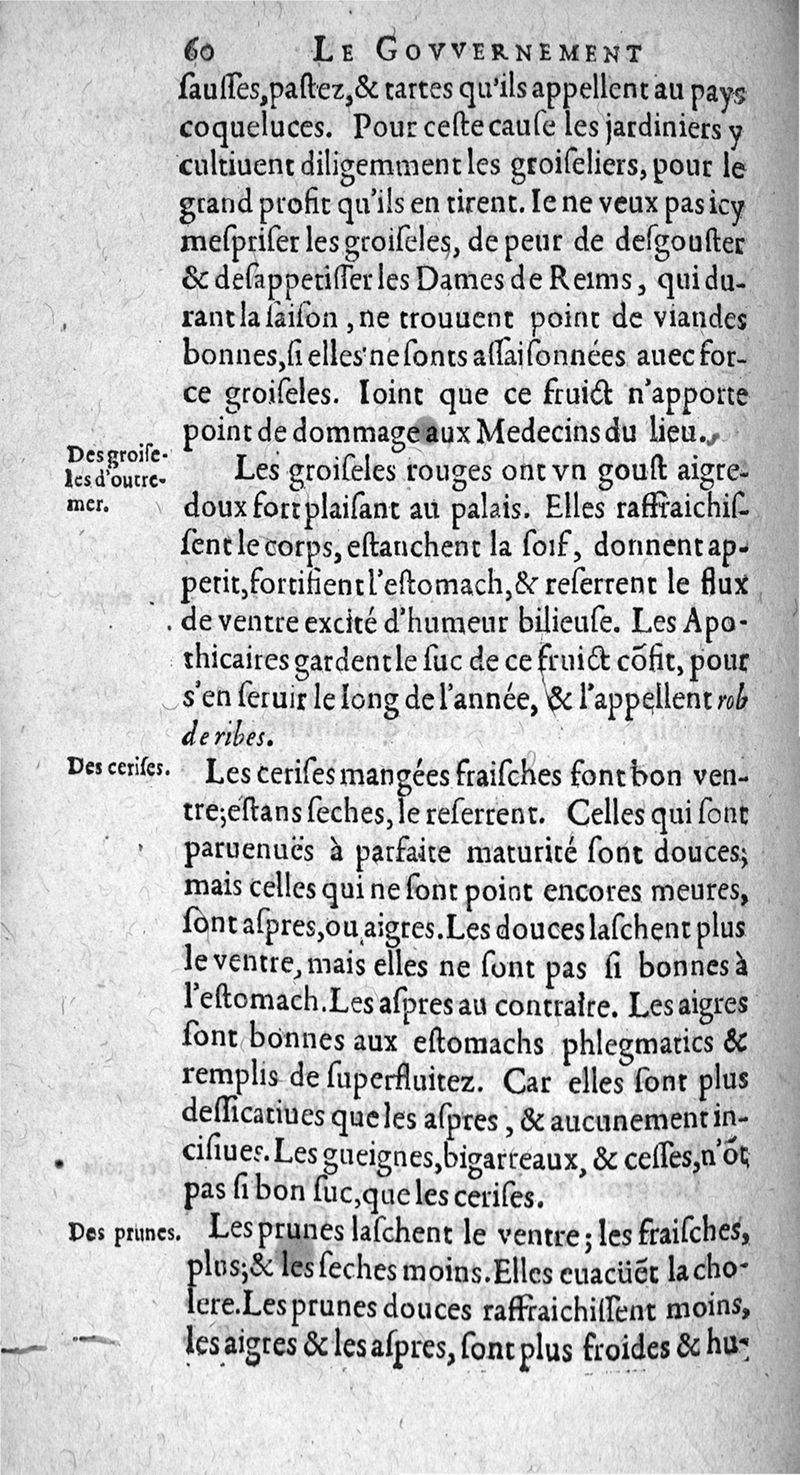 60 LE GOVVERNEMENT
ſauſſes, paſtez, & tartes qu'ils appellent au pays
coqueluces. Pour ceſte cauſe les jardiniers y
cultiuent diligemment les groiſeliers, pour le
grand profit qu'ils en tirent. Ie ne veux pas icy
meſpriſer les groiſeles, de peur de deſgouſter
& deſappetiſſer les Dames de Reims, qui du-
rant la ſaiſon, ne trouuent point de viandes
bonnes, ſi elles ne ſonts aſſaiſonnées auec for-
ce groiſeles. Ioint que ce fruict n'apporte
point de dommage aux Medecins du lieu.
Des groiſe-
les d'outre-
mer.
Les groiſeles rouges ont vn gouſt aigre-
doux fort plaiſant au palais. Elles raffraichiſ-
ſent le corps, eſtanchent la ſoif, donnent ap-
petit, fortifient l'eſtomach, & reſerrent le flux
de ventre excité d'humeur bilieuſe. Les Apo-
thicaires gardent le ſuc de ce fruict cõfit, pour
s'en ſeruir le long de l'année, & l'appellent rob
de ribes.
Des ceriſes.
Les ceriſes mangées fraiſches font bon ven-
tre; eſtans ſeches, le reſerrent. Celles qui ſont
paruenuës à parfaite maturité ſont douces;
mais celles qui ne ſont point encores meures,
ſont aſpres, ou aigres. Les douces laſchent plus
le ventre, mais elles ne ſont pas ſi bonnes à
l'eſtomach. Les aſpres au contraire. Les aigres
ſont bonnes aux eſtomachs phlegmatics &
remplis de ſuperfluitez. Car elles ſont plus
deſſicatiues que les aſpres, & aucunement in-
ciſiues. Les gueignes, bigarreaux, & ceſſes, n'õt
pas ſi bon ſuc, que les ceriſes.
Des prunes.
Les prunes laſchent le ventre; les fraiſches,
plus; & les ſeches moins. Elles euacüẽt la cho-
lere. Les prunes douces raffraichiſſent moins,
les aigres & les aſpres, ſont plus froides & hu-